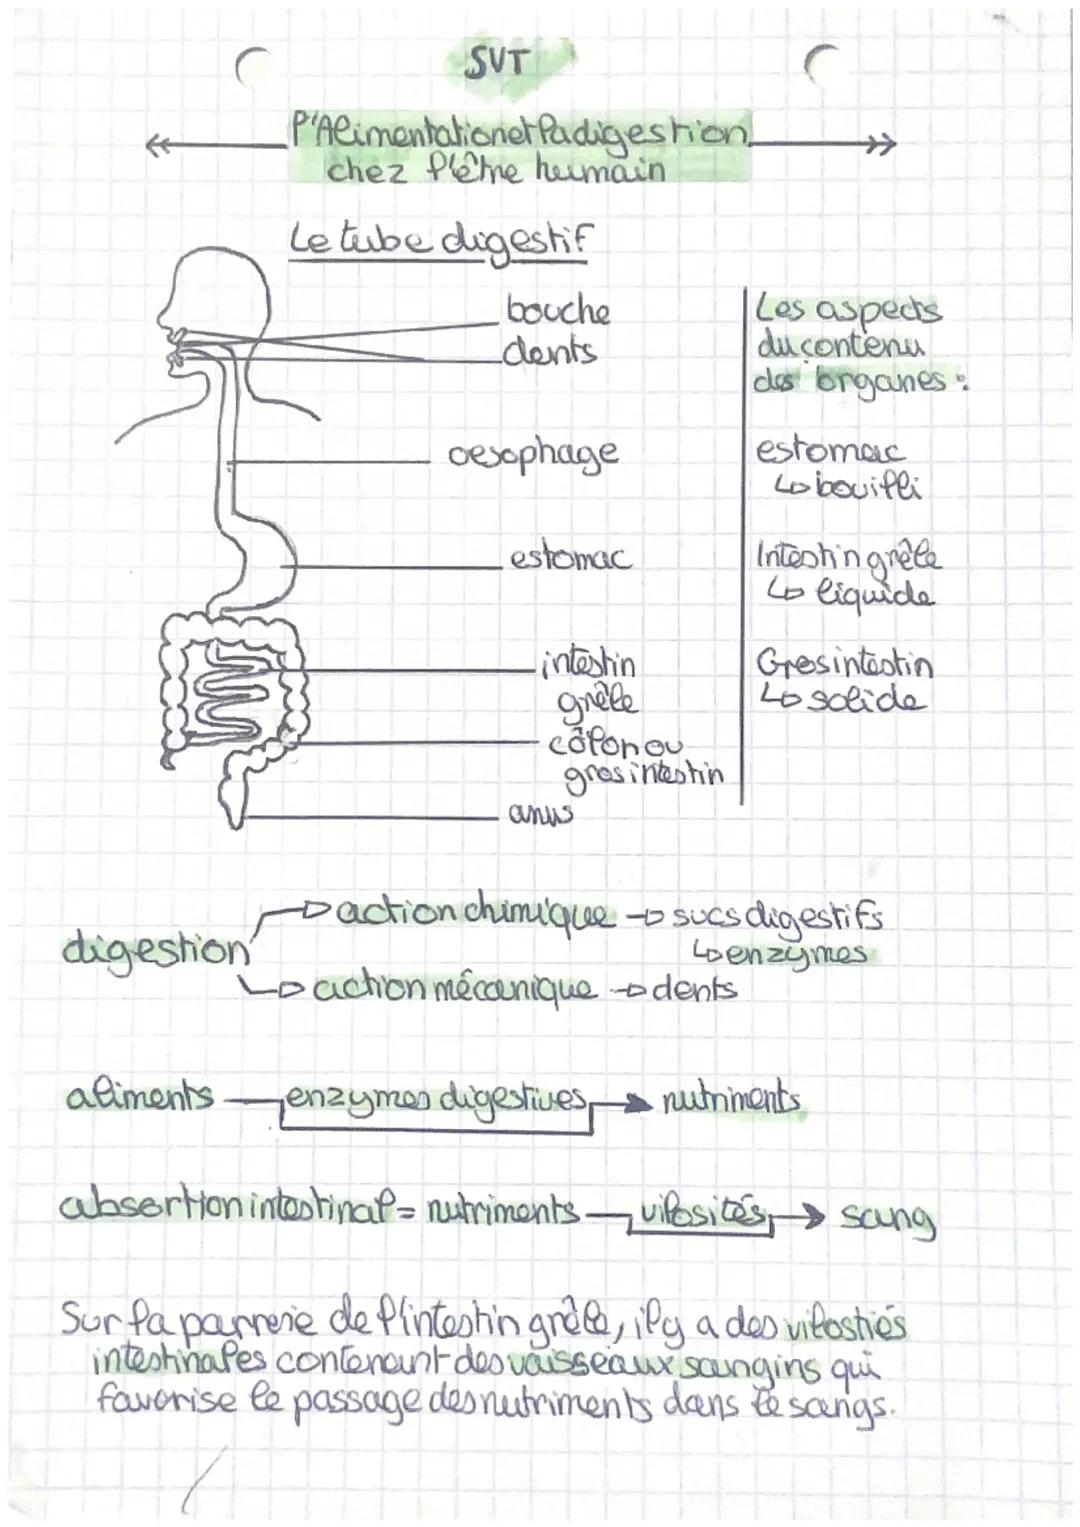 SVT
l'Alimentation et la digestion
chez l'être humain
Le tube digestif
bouche
dents
oesophage
estomac
intestin
grêle
côlon ou
gros intestin
anus
Les aspects
du contenu
des organes :
estomac
↳ bouilli
Intestin grêle
↳ liquide
Gros intestin
↳ solide
digestion
→ action chimique → sucs digestifs
↳ enzymes
↳ action mécanique → dents
aliments enzymes digestives → nutriments
absortion intestinal = nutriments villosités → sang
Sur la parreie de l'intestin grêle, il y a des vilostiés
intestinales contenant des vaisseaux sanguins qui
favorise le passage des nutriments dans le sangs.